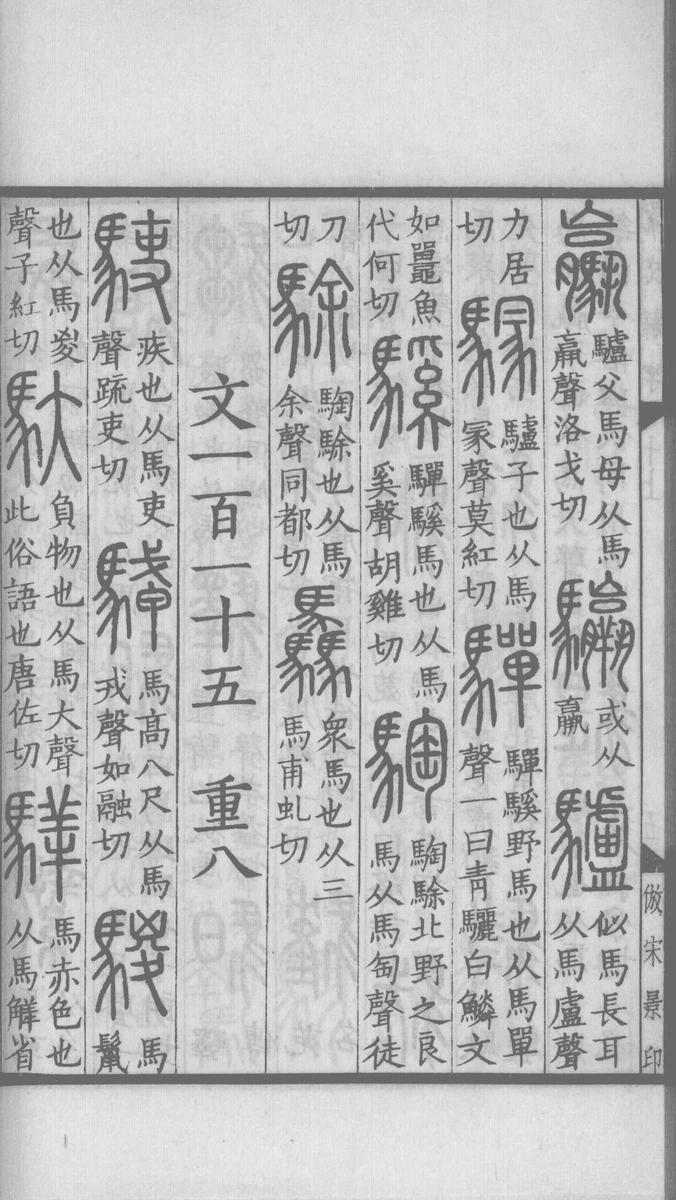 倣宋景印
驘驢父馬母从馬𣎆聲洛戈切騾或从羸驢似馬長耳从馬盧聲
力居切䮵驢子也从馬冡聲莫紅切驒驒騱野馬也从馬單聲一曰青驪白鱗文
如鼉魚代何切騱驒騱馬也从馬奚聲胡雞切騊騊駼北野之良馬从馬匋聲徒
刀切駼騊駼也从馬余聲同都切驫眾馬也从三馬甫虬切
文一百一十五　重八
駛疾也从馬吏聲疏吏切駥馬高八尺从馬戎聲如融切騣馬鬣
也从馬㚇聲子紅切馱負物也从馬大聲此俗語也唐佐切騂馬赤色也从馬觲省